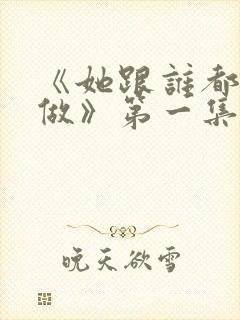 《她跟誰都
做》第一集
晚天欲雪